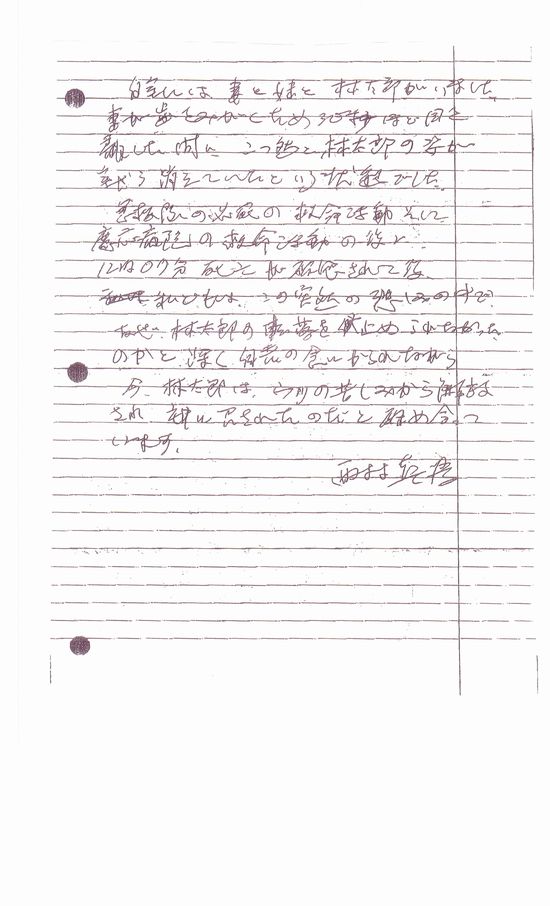 自宅には 妻と妹と 林太郎がいました。
妻が歯をみがくため 30秒ほど目を
離した間に こつ然と林太郎の姿が
家から消えていたという状態でした。
の必死の救命活動 そして
慶応病院の救命活動の後
12時07分 死亡が確認されて後
私どもは、この突然の悲しみの中で
なぜ、林太郎の転落を 止められなかった
のかと 深く自責の念にかられながら
今、林太郎は、の苦しみから解放
され 神に召されたのだと 慰め合って
います。
西村